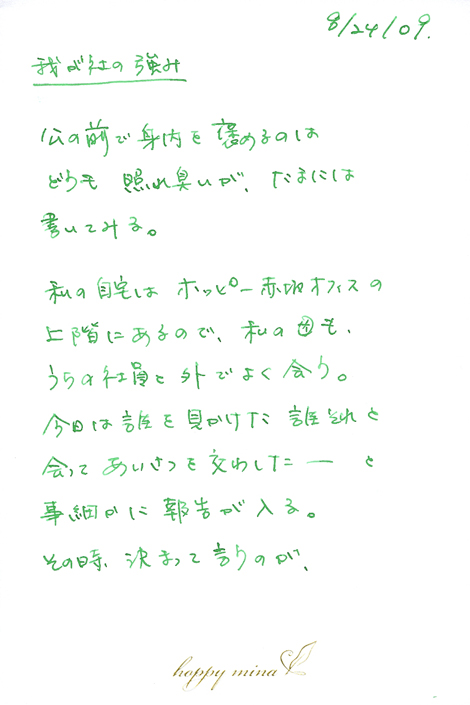 8/24/09.
我が社の強み
公の前で身内を褒めるのは
どうも 照れ臭いが、たまには
書いてみる。
私の自宅は ホッピー赤坂オフィスの
上階にあるので、私の母も、
うちの社員と外でよく会う。
今日は誰を見かけた 誰それと
会ってあいさつを交わした ー と
事細かに報告が入る。
その時、決まって言うのが、
hoppy mina